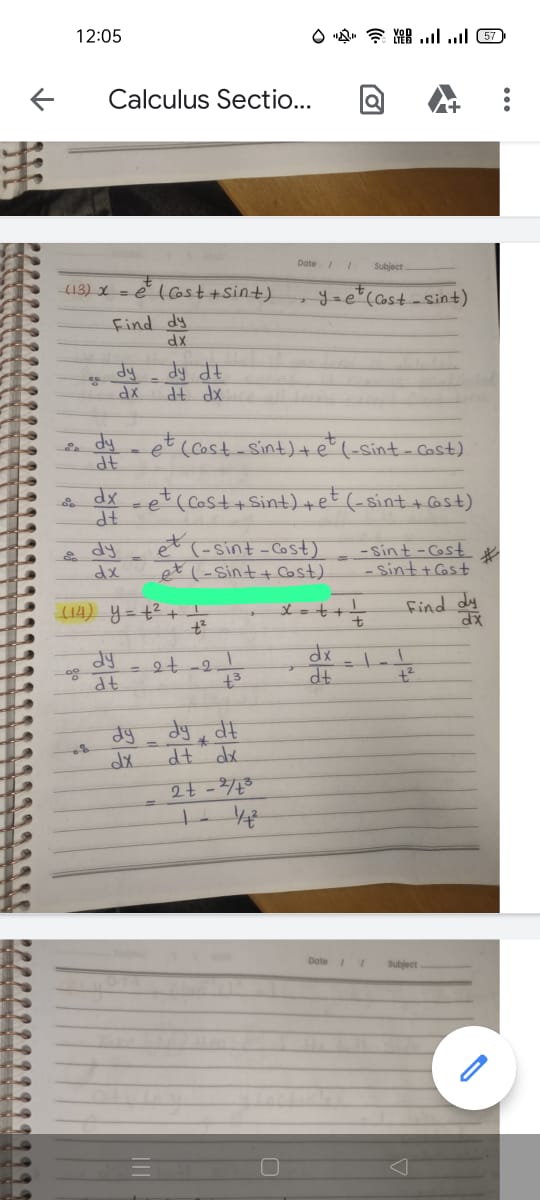 12:05
VOD LTE 57
Calculus Sectio...
Date / / Subject
(13) x = e^t (Cost + Sint) , y = e^t (Cost - Sint)
Find dy/dx
∴ dy/dx = dy/dt dt/dx
∴ dy/dt = e^t (Cost - Sint) + e^t (-Sint - Cost)
∴ dx/dt = e^t (Cost + Sint) + e^t (-Sint + Cost)
∴ dy/dx = e^t (-Sint - Cost) / e^t (-Sint + Cost) = -Sint - Cost / -Sint + Cost #
(14) y = t² + 1/t² , x = t + 1/t Find dy/dx
∴ dy/dt = 2t - 2 1/t³ , dx/dt = 1 - 1/t²
∴ dy/dx = dy/dt * dt/dx
= 2t - 2/t³ / 1 - 1/t²
Date / / Subject